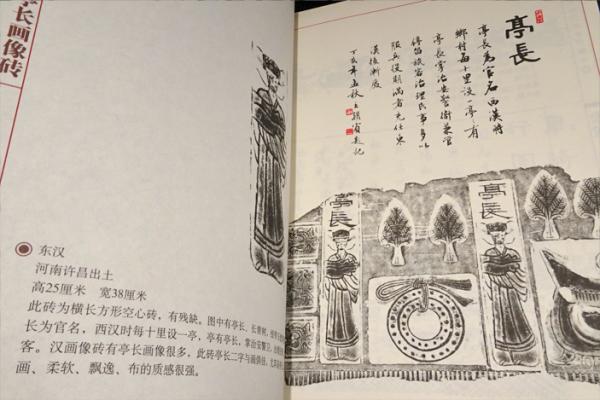 亭长画像砖
东汉
河南许昌出土
高25厘米 宽38厘米
此砖为横长方形空心砖，有残缺。图中有亭长、长青树、
长为官名，西汉时每十里设一亭，亭有亭长，掌治安警卫，
客。汉画像砖有亭长画像很多，此砖亭长二字与画俱佳，
画、柔软、飘逸、布的质感很强。
亭長
亭長為官名西漢時
鄉村每十里設一亭亭有
亭長掌治安警衛兼管
停留旅客治理民事多以
服兵役期滿者充任東
漢後漸廢
丁亥年
亭長
亭長